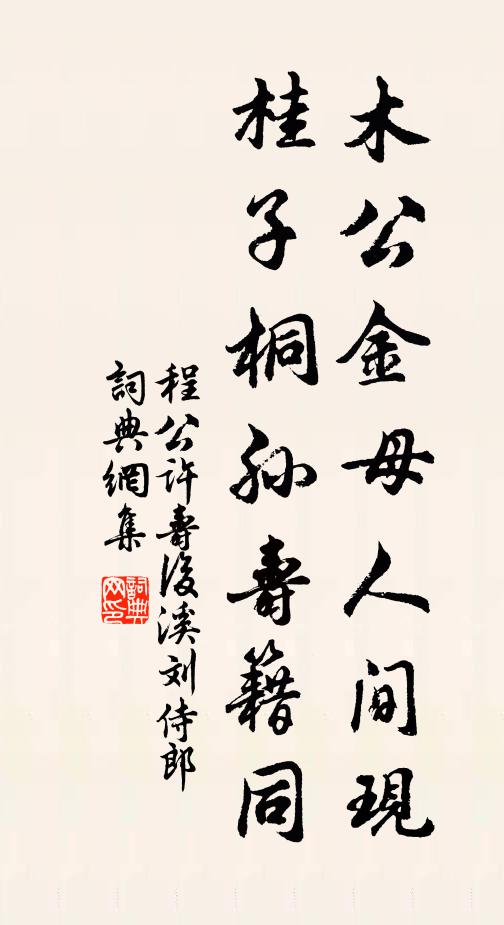 木公金母人间現
桂子桐孙壽籍同
程公許壽後溪刘侍郎
詞典網集
詞典網印